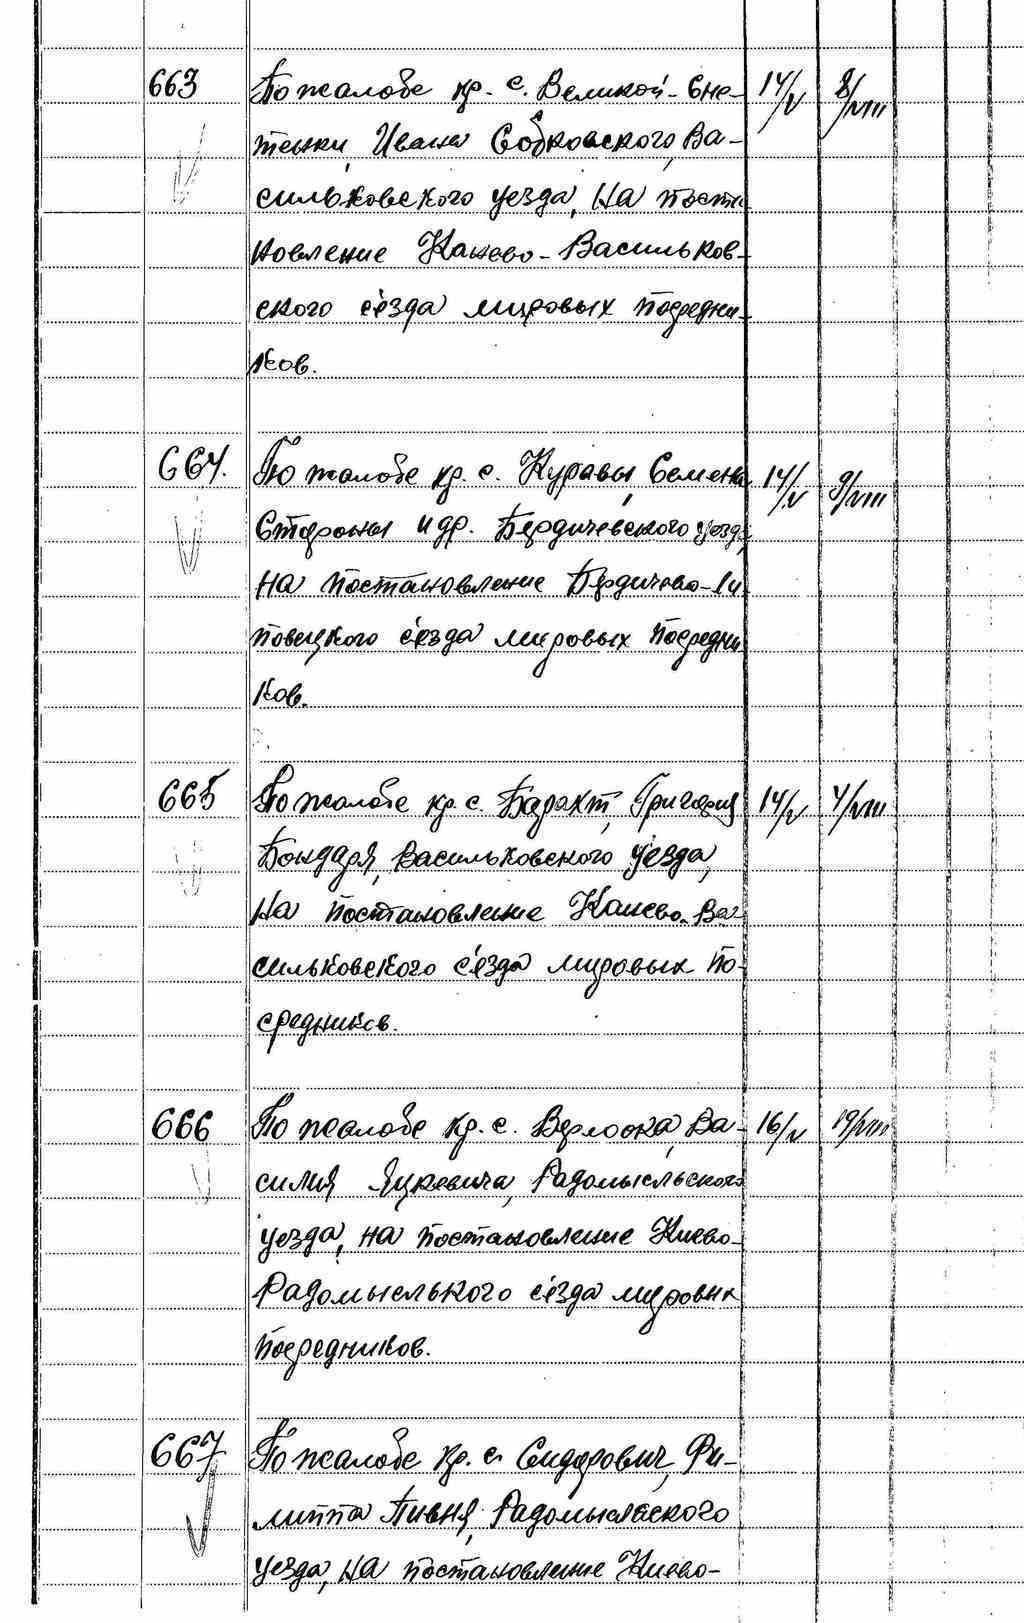 663 По жалобе кр. с. Великой-Сне- 14/V 8/VIII
тенки, Ивана Собковского, Ва-
сильковского уезда, на поста
новление Канево-Васильков-
ского с'езда мировых посредни-
ков.
664. По жалобе кр. с. Журавы, Семена 14/V 9/VIII
Стороны и др. Бердичевского уезда,
на постановление Бердичево-Ли
повецкого с'езда мировых посредни
ков.
665 По жалобе кр. с. Барахт, Григория 14/V 4/VIII
Бондаря, Васильковского уезда,
на постановление Канево-Ва-
сильковского с'езда мировых по-
средников.
666 По жалобе кр. с. Верлоока, Ва- 16/V 19/VIII
силия Яцкевича, Радомысльского
уезда, на постановление Киево-
Радомыслького с'езда мировых
посредников.
667 По жалобе кр. с. Сидорович, Фи-
липпа Пивня, Радомыслского
уезда, на постановление Киево-